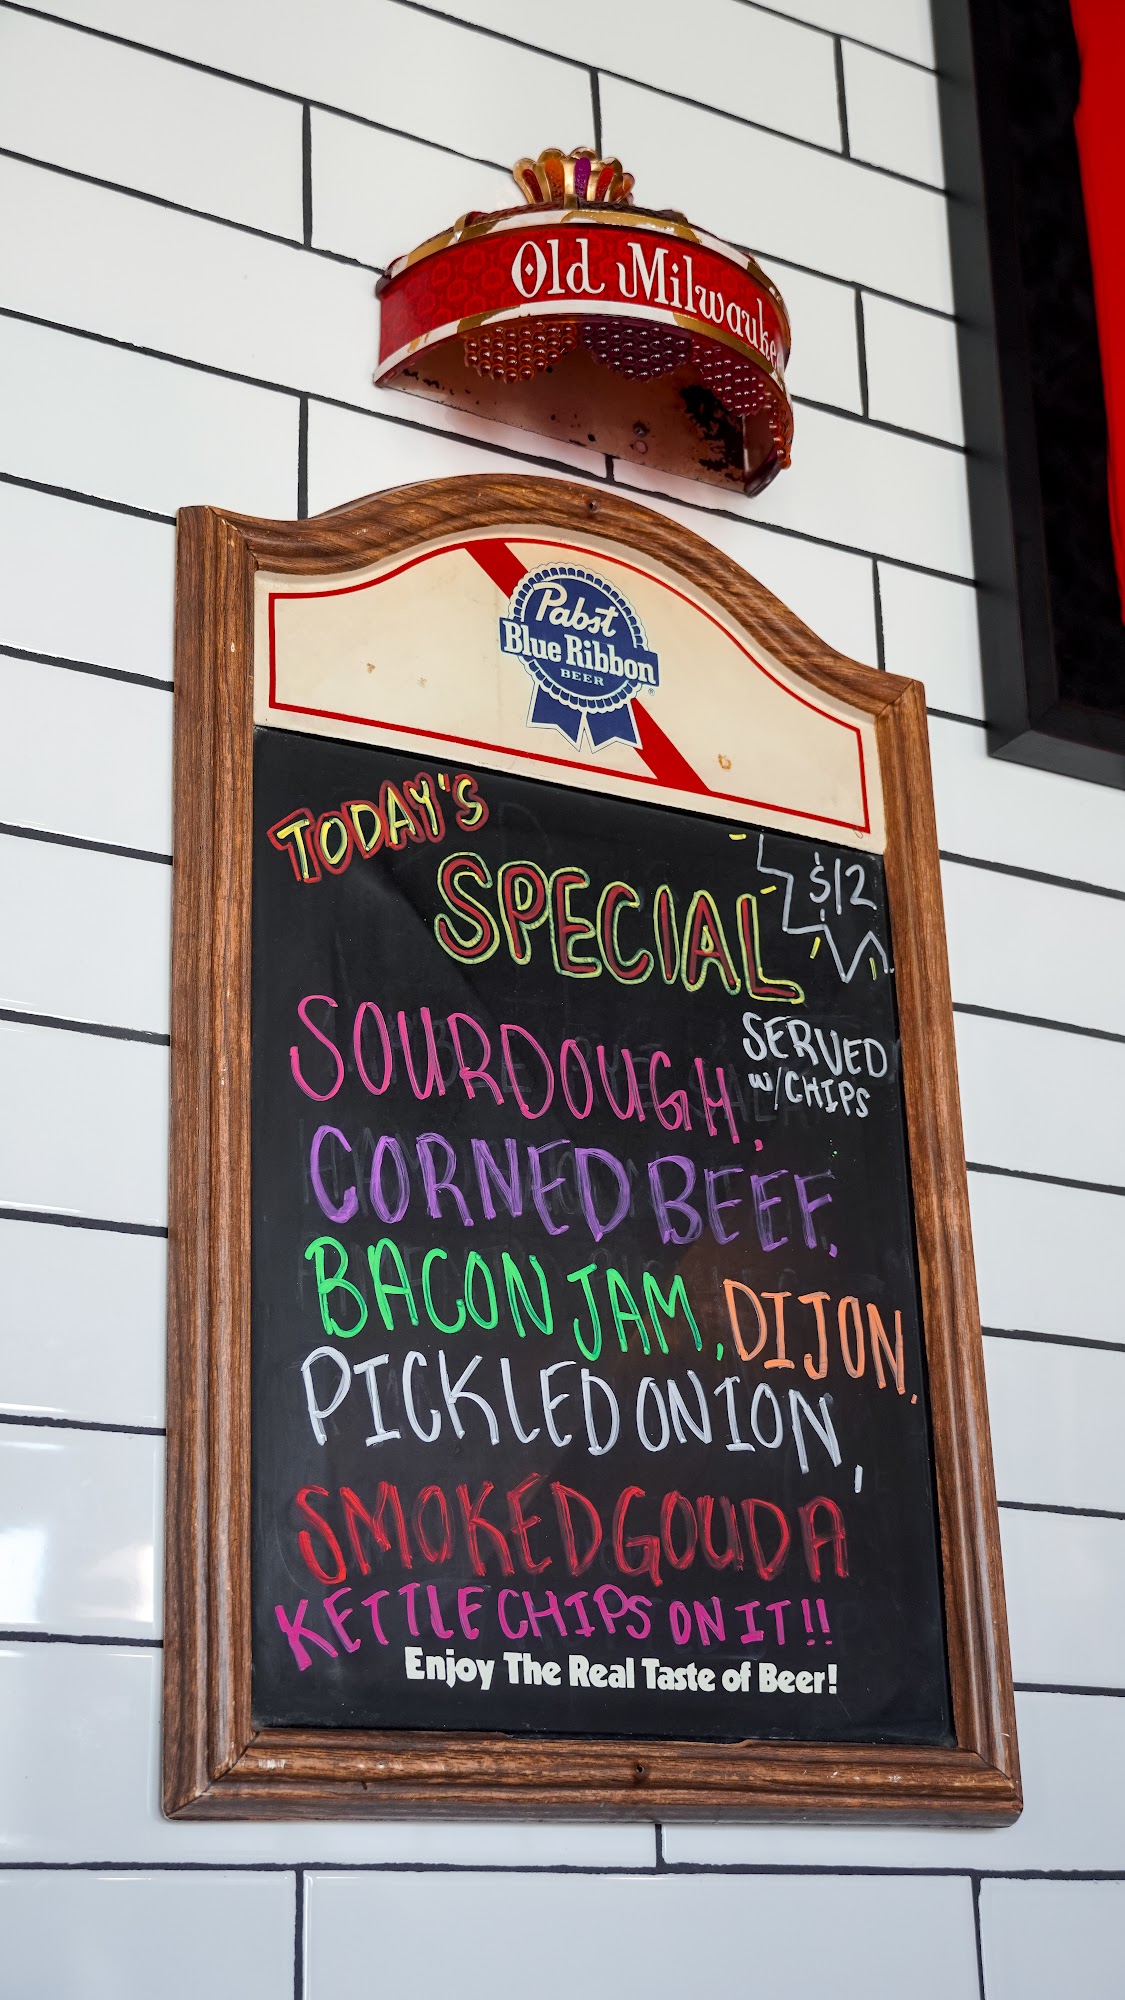 Old Milwaukee
Pabst
Blue Ribbon
BEER
®
TODAY'S
SPECIAL
$12
SERVED
w/CHIPS
SOURDOUGH,
CORNED BEEF,
BACON JAM, DIJON,
PICKLED ONION,
SMOKED GOUDA
KETTLE CHIPS ON IT!!
Enjoy The Real Taste of Beer!